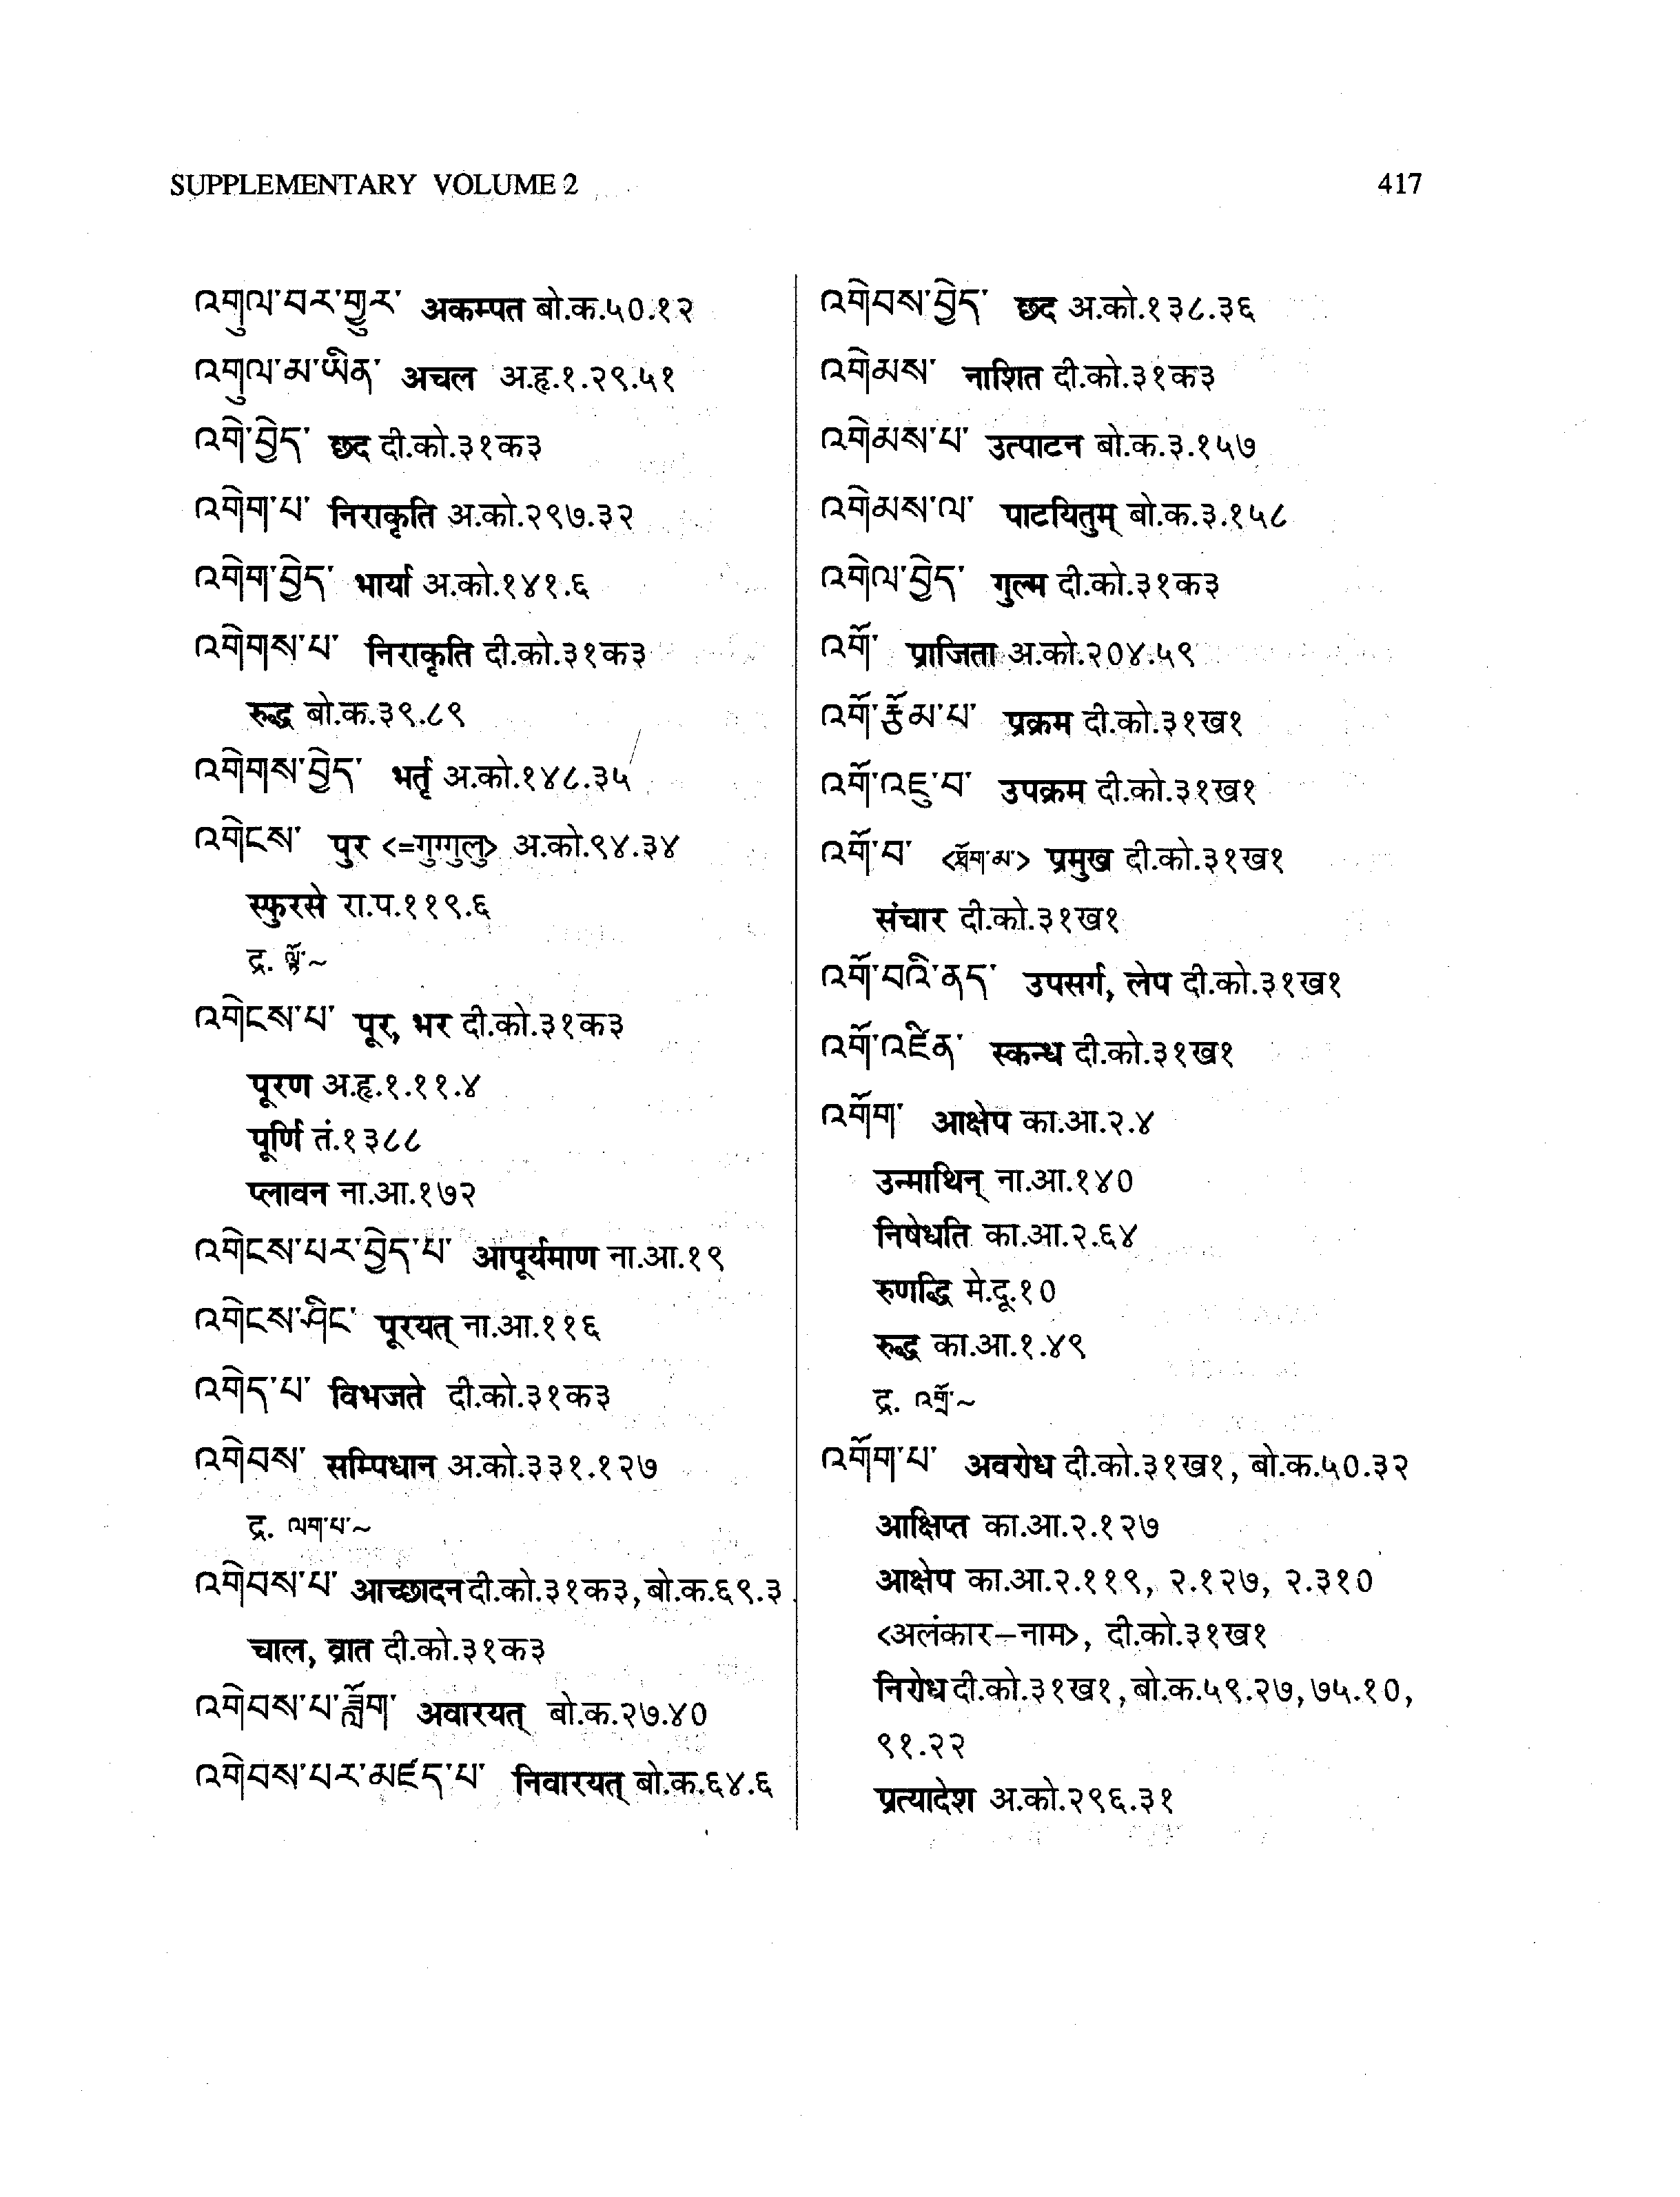 SUPPLEMENTARY VOLUME 2
417
འགུལ་བར་གྱུར་ अकम्पत बो.क.५०.१२
འགུལ་མ་ཡིན་ अचल अ.हृ.१.२९.५१
འགེ་བྱེད་ छद दी.को.३१क३
འགེག་པ་ निराकृति अ.को.२९७.३२
འགེག་བྱེད་ भार्या अ.को.१४१.६
འགེགས་པ་ निराकृति दी.को.३१क३
रुद्ध बो.क.३९.८९
འགེགས་བྱེད་ भर्तृ अ.को.१४८.३५
འགེངས་ पुर <=गुग्गुलु> अ.को.९४.३४
स्फुरसे रा.प.११९.६
द्र. ལྟོ་~
འགེངས་པ་ पूर, भर दी.को.३१क३
पूरण अ.हृ.१.११.४
पूर्णि तं.१३८८
प्लावन ना.आ.१७२
འགེངས་པར་བྱེད་པ་ आपूर्यमाण ना.आ.१९
འགེངས་ཤིང་ पूरयत् ना.आ.११६
འགེད་པ་ विभजते दी.को.३१क३
འགེབས་ सम्पिधान अ.को.३३१.१२७
द्र. ལག་པ་~
འགེབས་པ་ आच्छादन दी.को.३१क३, बो.क.६९.३
चाल, व्रात दी.को.३१क३
འགེབས་པ་ཟློག་ अवारयत् बो.क.२७.४०
འགེབས་པར་མཛད་པ་ निवारयत् बो.क.६४.६
འགེབས་བྱེད་ छद अ.को.१३८.३६
འགེམས་ नाशित दी.को.३१क३
འགེམས་པ་ उत्पाटन बो.क.३.१५७
འགེམས་ལ་ पाटयितुम् बो.क.३.१५८
འགེལ་བྱེད་ गुल्म दी.को.३१क३
འགོ་ प्राजिता अ.को.२०४.५९
འགོ་རྩོམ་པ་ प्रक्रम दी.को.३१ख१
འགོ་འཇུ་བ་ उपक्रम दी.को.३१ख१
འགོ་བ་ <ཐོག་མ་> प्रमुख दी.को.३१ख१
संचार दी.को.३१ख१
འགོ་བའི་ནད་ उपसर्ग, लेप दी.को.३१ख१
འགོ་འཛིན་ स्कन्ध दी.को.३१ख१
འགོག་ आक्षेप का.आ.२.४
उन्माथिन् ना.आ.१४०
निषेधति का.आ.२.६४
रुणद्धि मे.दू.१०
रुद्ध का.आ.१.४९
द्र. འགྲོ་~
འགོག་པ་ अवरोध दी.को.३१ख१, बो.क.५०.३२
आक्षिप्त का.आ.२.१२७
आक्षेप का.आ.२.११९, २.१२७, २.३१०
<अलंकार–नाम>, दी.को.३१ख१
निरोध दी.को.३१ख१, बो.क.५९.२७, ७५.१०,
९१.२२
प्रत्यादेश अ.को.२९६.३१